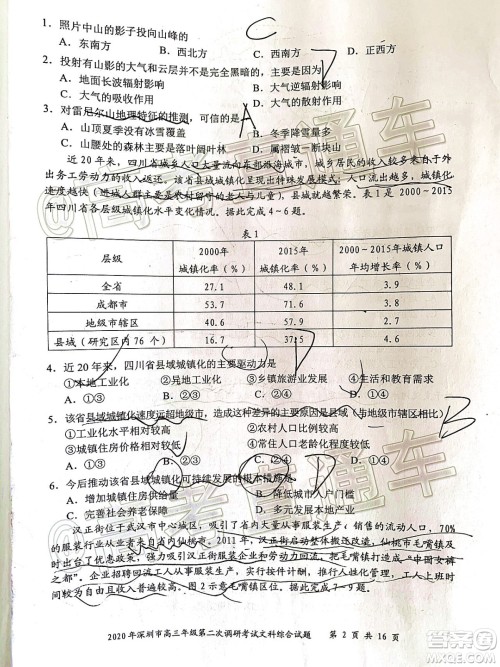 1. 照片中山的影子投向山峰的
A. 东南方 B. 西北方 C. 西南方 D. 正西方
2. 投射有山影的大气和云层并不是完全黑暗的，主要是因为
A. 地面长波辐射影响 B. 大气逆辐射影响
C. 大气的吸收作用 D. 大气的散射作用
3. 对雷尼尔山地理特征的推测，可信的是
A. 山顶夏季没有冰雪覆盖 B. 冬季降雪量多
C. 山腰处的森林是落叶阔叶林 D. 属褶皱—断块山
近20年来，四川省城乡人口大量流向东部沿海城市，城乡居民的收入越来越多来自于外
出务工劳动力的收入返还。该省县域城镇化呈现出特殊发展模式：人口流出越多，城镇化
速度越快（进城人群主要是农村留守的老人与儿童），县城就越繁荣。表1是2000～2015
年四川省各层级城镇化水平变化情况。据此完成4～6题。
表1
层级 2000年城镇化率（%） 2015年城镇化率（%） 2000～2015年城镇人口年均增长率（%）
全省 27.1 48.1 3.9
成都市 53.7 71.6 3.8
地级市辖区 40.6 57.9 3.8
县域（研究区内76个） 16.7 37.5 4.6
4. 近20年来，四川省县域城镇化的主要驱动力是
①本地工业化 ②异地工业化 ③乡镇旅游业发展 ④生活和教育需求
A. ①③ B. ②③ C. ①④ D. ②④
5. 该省县域城镇化速度远超地级市，造成这种差异的主要原因是县域（与地级市辖区相比）
①工业化水平相对较高 ②农村人口比重相对较大
③城镇住房价格相对较低 ④常住人口老龄化程度相对较高
A. ①③ B. ②③ C. ①④ D. ②④
6. 今后推动该省县域城镇化可持续发展的根本措施是
A. 增加城镇住房供给量 B. 降低城市入户门槛
C. 完善社会养老保障 D. 多元发展本地产业
汉正街位于武汉市中心城区，吸引了省内外大量的人来此从事服装生产、销售的流动人口，70%
的服装行业从业者来自省内仙桃市。2011年，汉正街启动整体搬迁改造，仙桃市毛嘴镇及
时出台了优惠政策，强力吸引汉正街服装企业和劳动力回流，把毛嘴镇发展成为“中国女裤
之都”。企业招聘回流工人从事五天制生产与管理，采用计件工资，工人上班时间
较为自由且收入普遍较高。图2示意毛嘴镇区位。据此完成7～9题。
2020年深圳市高三年级第二次调研考试文科综合试题 第2页 共16页